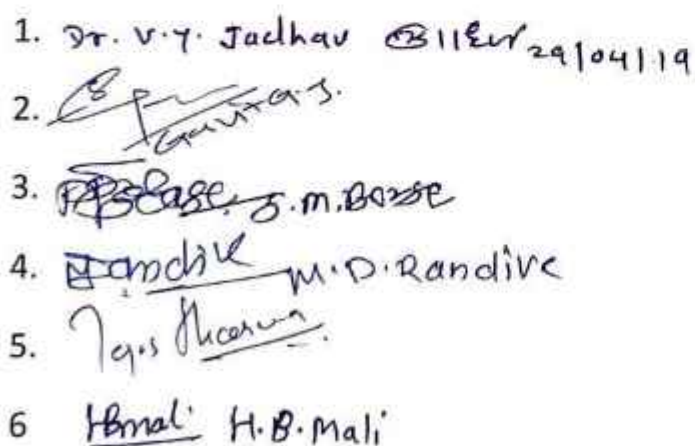 1. Dr. V.Y. Jadhav 29/04/19
2. Gavita.J.
3. J.M.Borse
4. Randive M.D.Randive
5. Sharma
6 HBmali H.B.Mali